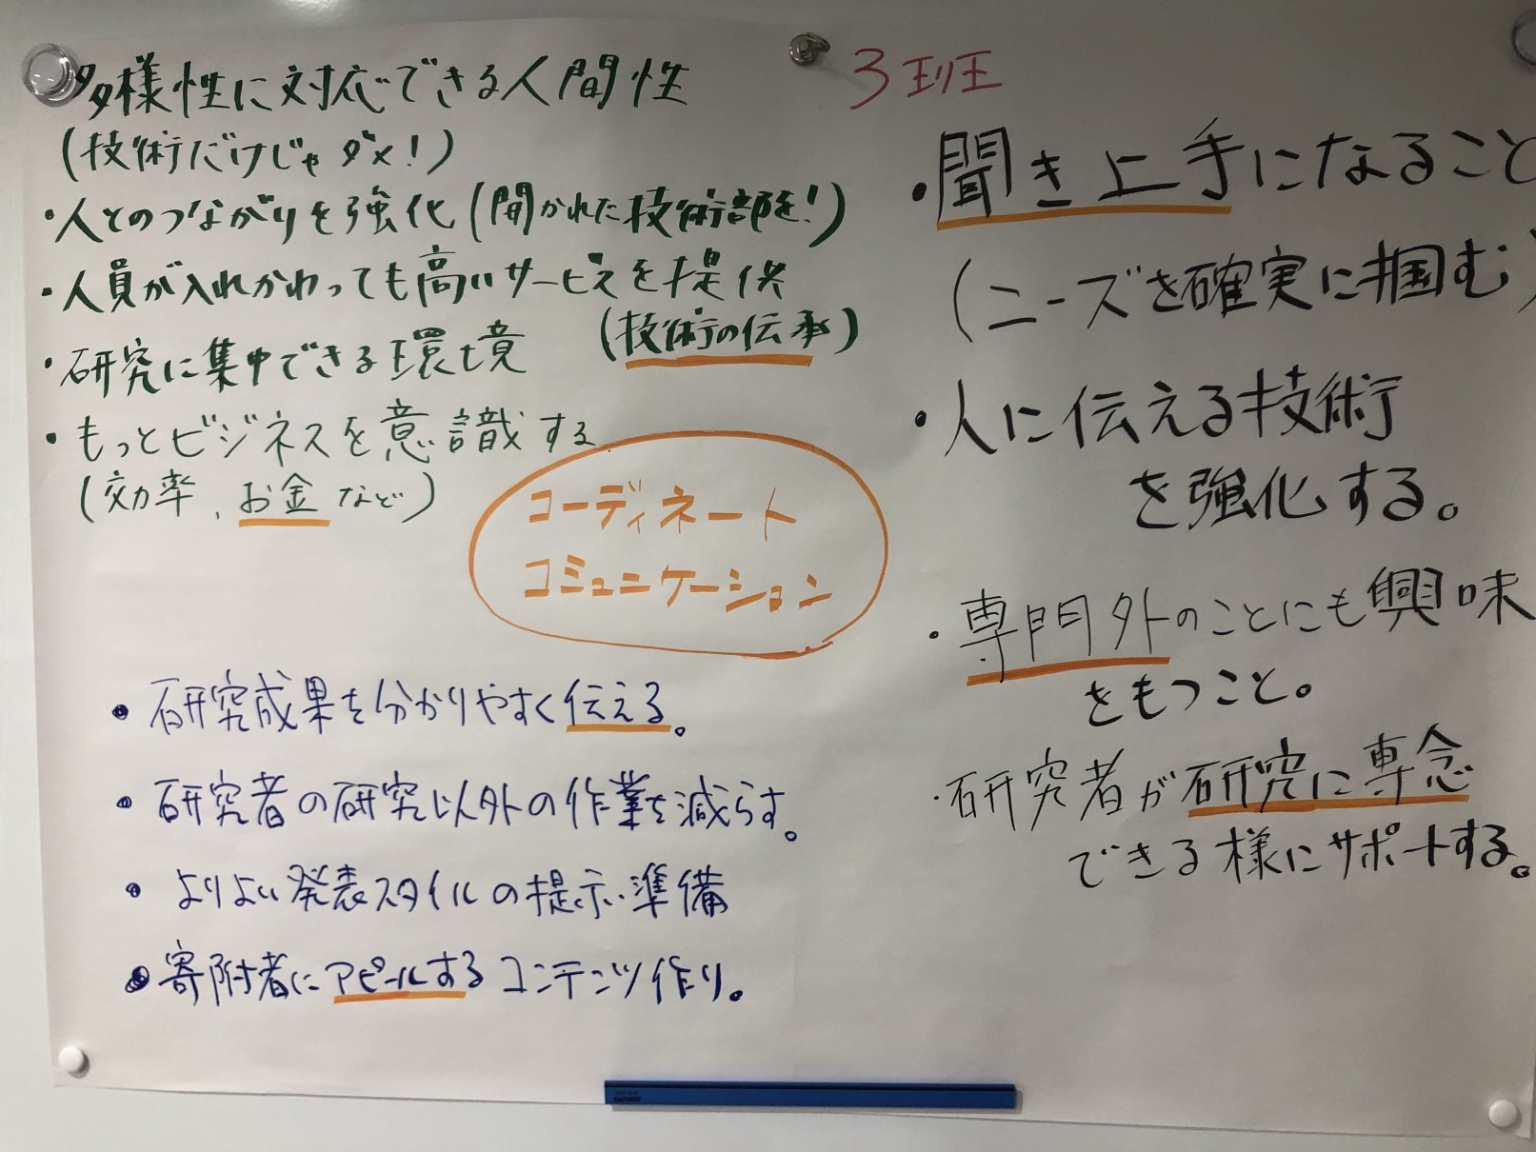 多様性に対応できる人間性
(技術だけじゃダメ!)
・人とのつながりを強化(開かれた技術部を!)
・人員が入れかわっても高いサービスを提供
(技術の伝承)
・研究に集中できる環境
・もっとビジネスを意識する
(効率、お金など)
コーディネート
コミュニケーション
・研究成果を分かりやすく伝える。
・研究者の研究以外の作業を減らす。
・よりよい発表スタイルの提示・準備
・寄附者にアピールするコンテンツ作り。
3班
・聞き上手になること
(ニーズを確実に掴む)
・人に伝える技術
を強化する。
・専門外のことにも興味
をもつこと。
・研究者が研究に専念
できる様にサポートする。